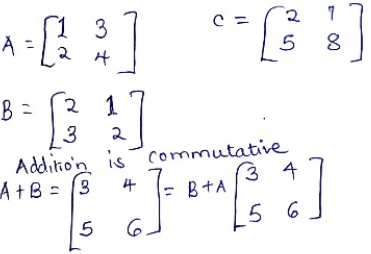 A = [1 3
2 4]
C = [2 1
5 8]
B = [2 1
3 2]
Addition is commutative
A + B = [3 4
5 6] = B + A [3 4
5 6]